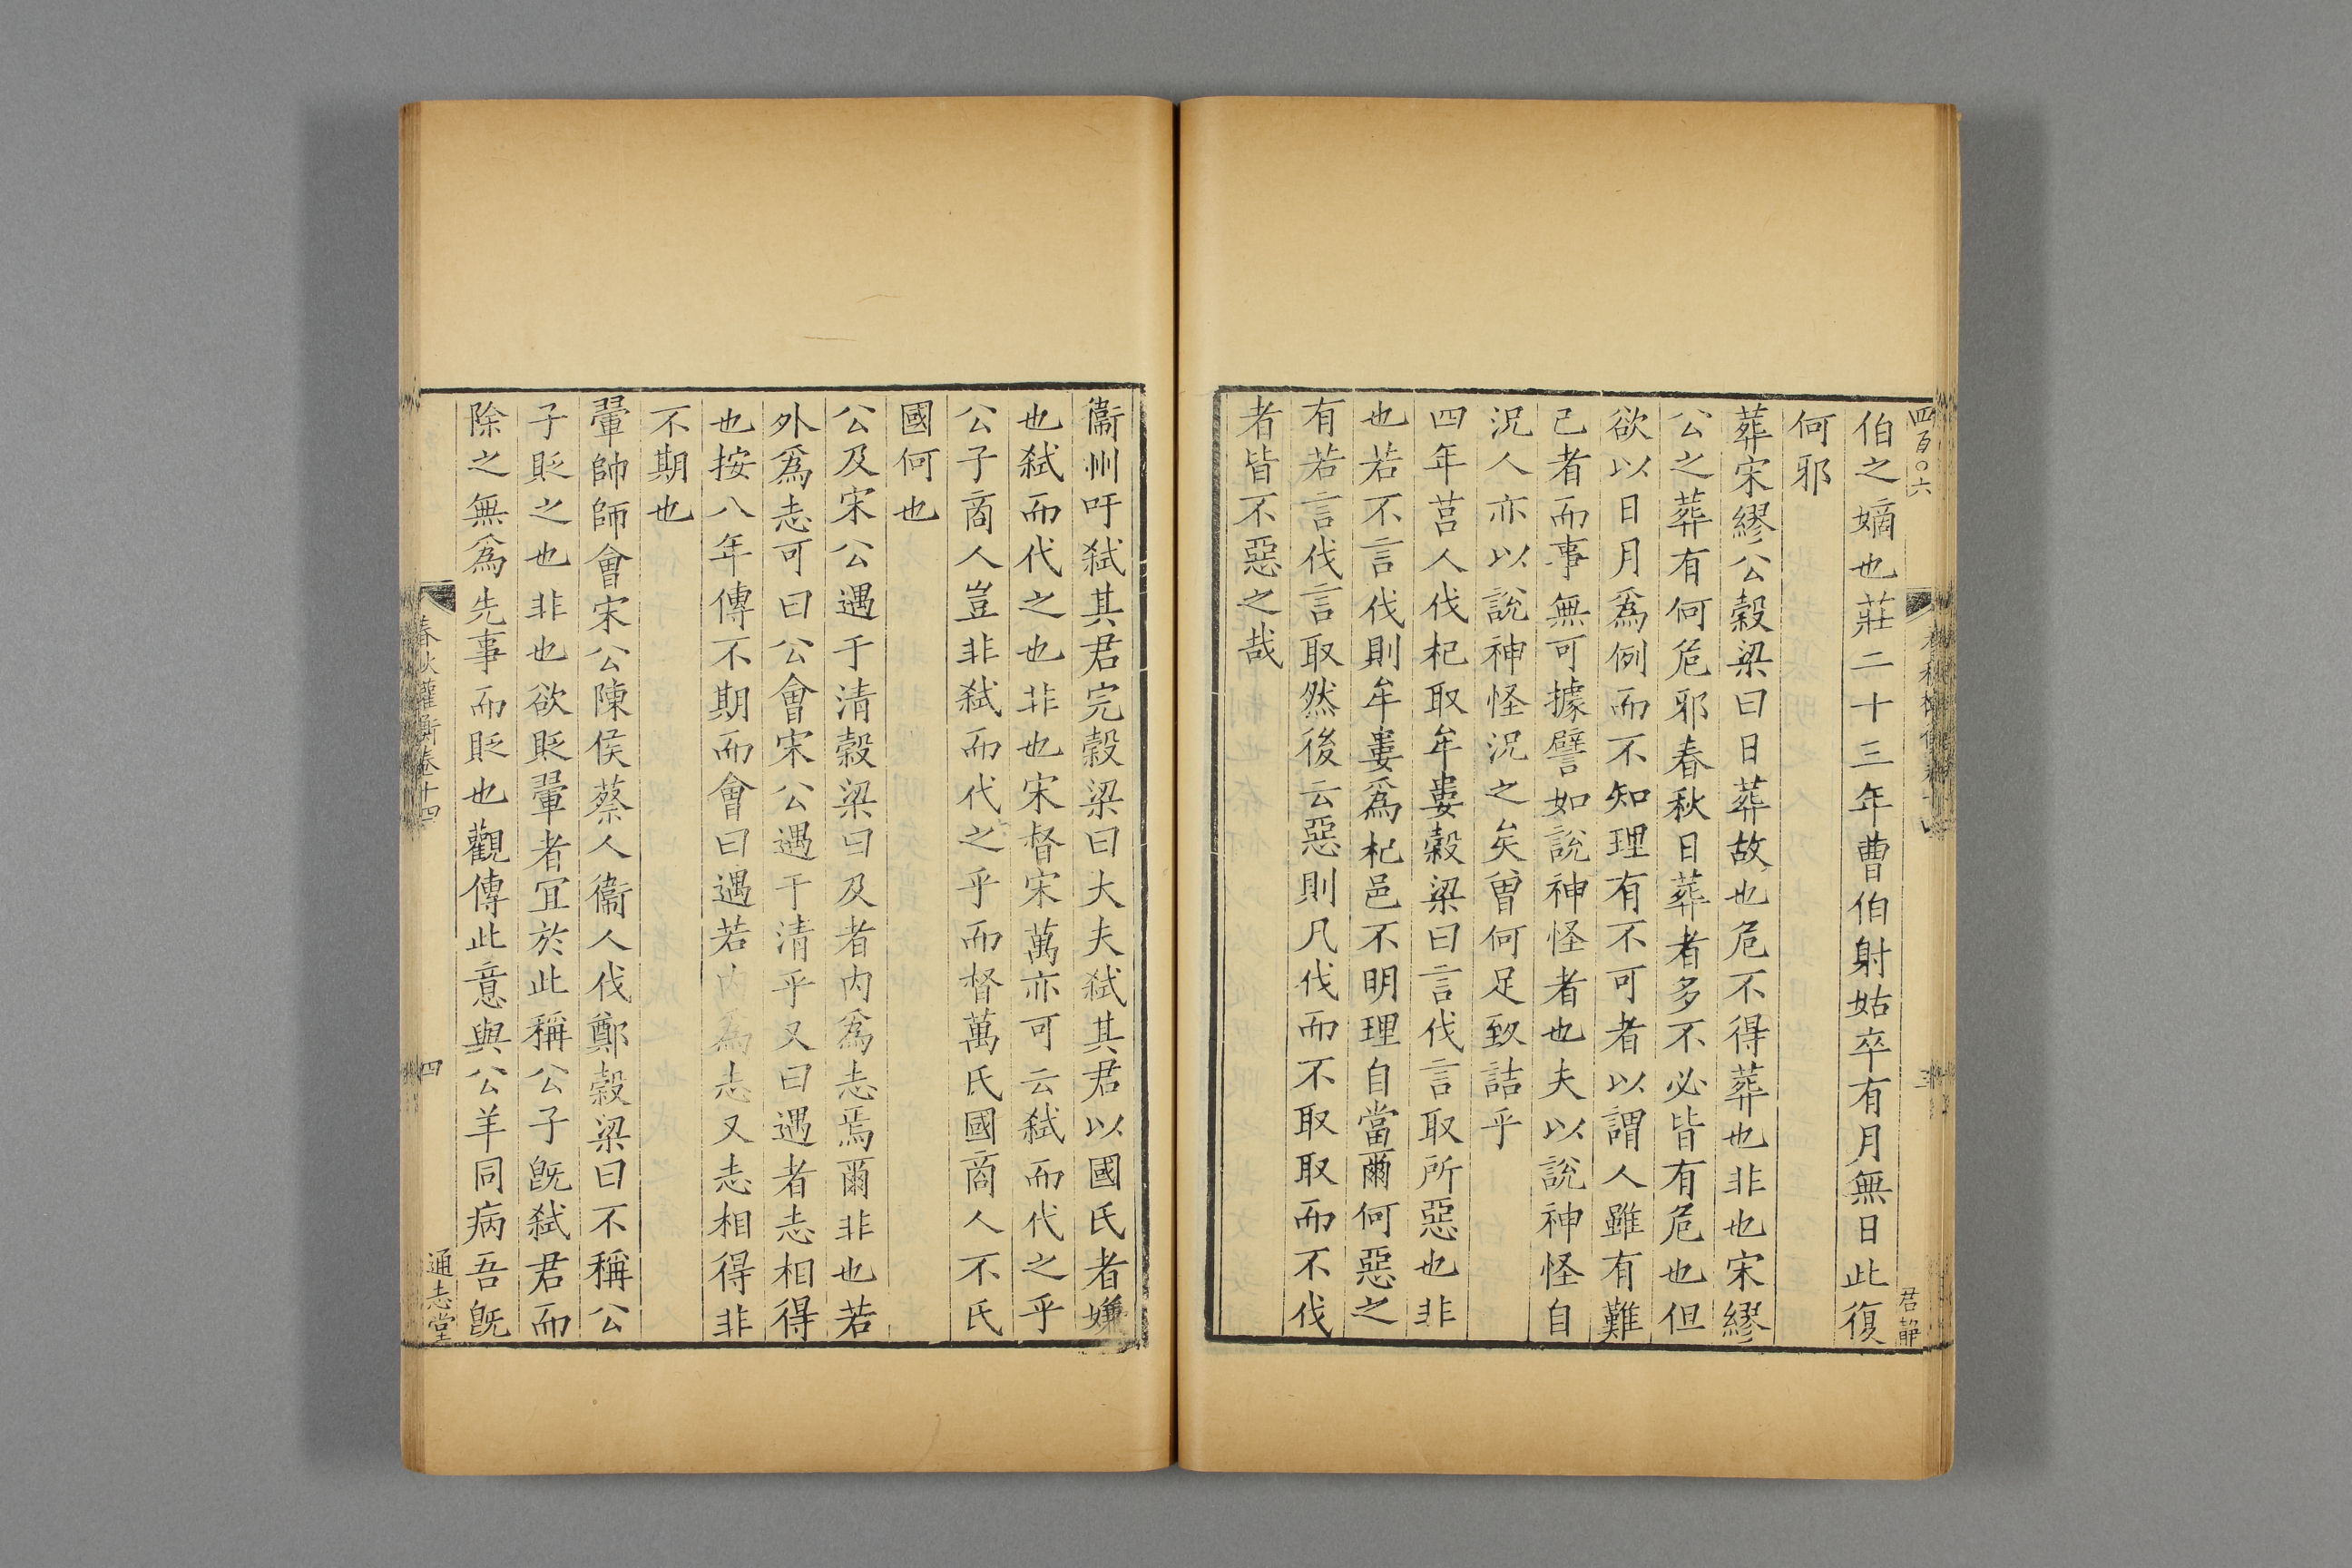 四百〇六
君静
伯之嫡也莊二十三年曹伯射姑卒有月無日此復
何邪
葬宋繆公穀梁曰日葬故也危不得葬也非也宋繆
公之葬有何危邪春秋日葬者多不必皆有危也但
欲以日月爲例而不知理有不可者以謂人雖有難
己者而事無可據譬如說神怪者也夫以說神怪自
況人亦以說神怪況之矣曾何足致詰乎
四年莒人伐杞取牟婁穀梁曰言伐言取所惡也非
也若不言伐則牟婁爲杞邑不明理自當爾何惡之
有若言伐言取然後云惡則凡伐而不取取而不伐
者皆不惡之哉
衞州吁弑其君完穀梁曰大夫弑其君以國氏者嫌
也弑而代之也非也宋督宋萬亦可云弑而代之乎
公子商人豈非弑而代之乎而督萬氏國商人不氏
國何也
公及宋公遇于清穀梁曰及者内爲志焉爾非也若
外爲志可曰公會宋公遇于清乎又曰遇者志相得
也按八年傳不期而會曰遇若内爲志又志相得非
不期也
翬帥師會宋公陳侯蔡人衞人伐鄭穀梁曰不稱公
子貶之也非也欲貶翬者宜於此稱公子旣弑君而
除之無爲先事而貶也觀傳此意與公羊同病吾旣
春秋權衡卷十四
四
通志堂